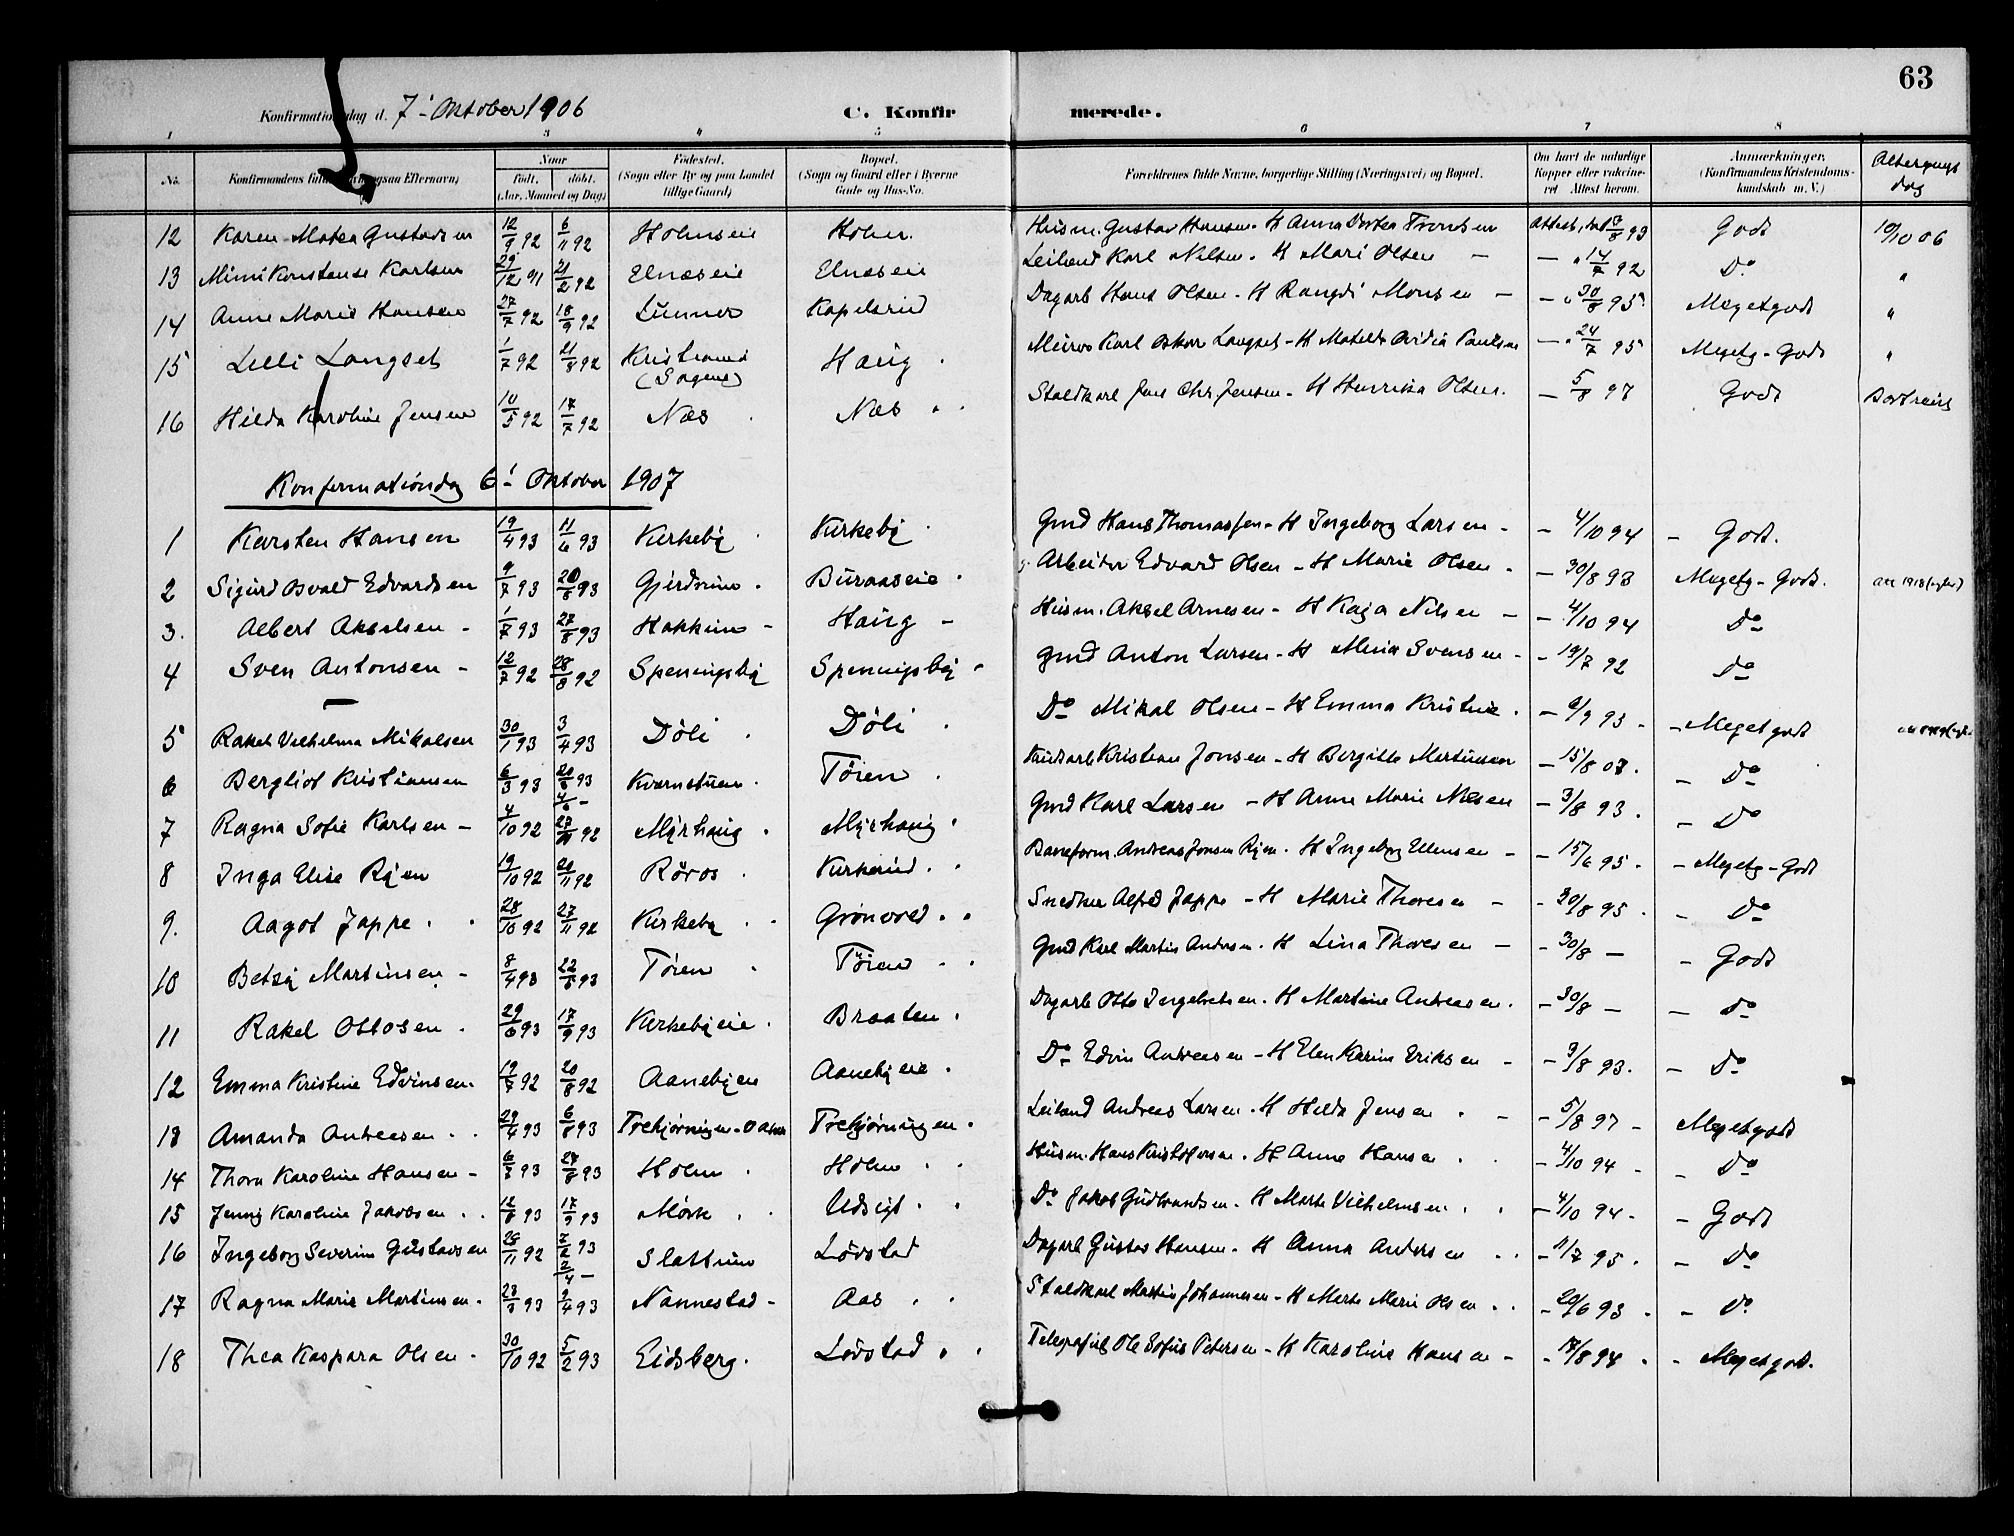 63
Konfirmationsdag d. 7' Oktober 1906 C. Konfir merede.
1 3 4 5 6 7 8
No. Konfirmandens fulde Navn (ogsaa Efternavn) Naar Födt. döbt. (Aar, Maaned og Dag) Födested. (Sogn eller By og paa Landet tillige Gaard) Bopæl. (Sogn og Gaard eller i Byerne Gade og Hus-No. Forældrenes fulde Navne, borgerlige Stilling (Næringsvei) og Bopæl. Om havt de naturlige Kopper eller vaccineret Attest herom. Anmærkninger. (Konfirmandens Kristendomskundskab m. V.) Altergangs dag
12 Karen Matea Gustavsen 12/9 92 6/11 92 Holmseie Holm Husm. Gustav Hansen - H Anna Dortea Trondsen Attest, dat 7/8 93 Godt 10/10 06
13 Mimi Konstanse Karlsen 29/12 91 21/2 92 Elnæseie Elnæseie Leilænd Karl Nilsen. H Mari Olsen - - " 14/7 92 Do "
14 Anne Marie Hansen 27/7 92 18/9 92 Lunner Kapelsrud Dagarb Hans Olsen - H Rangdi Monsen - - " 30/8 95 Megetgodt "
15 Lilli Langset 1/7 92 21/8 92 Kristiania (Sagene) Haug Murer Karl Oskar Langset - H Matilde Paulsen - " 24/7 95 Megetg-Godt "
16 Hilda Karoline Jensen 10/5 92 17/7 92 Næs Næs Staldkarl Jens Chr. Jensen - H Henrika Olsen. - 5/8 97 Godt Bortreist
Konfermationsdag 6' Oktober 1907
1 Karsten Hansen 19/4 93 11/6 93 Kirkeby Kirkeby Gmd Hans Thomassen - H Ingeborg Larsen - - 4/10 94 - Godt.
2 Sigurd Osvald Edvardsen 9/7 93 20/8 93 Gjerdrum Buraaseie Arbeider Edvard Olsen - H Marie Olsen - - 30/8 93 Megetg-Godt.
3. Albert Akselsen - 1/7 93 27/8 93 Hakkim - Haug - Husm. Aksel Arnesen - H Kaja Nilsen - - 4/10 94 Do
4 Sven Antonsen - 12/7 92 28/8 92 Speningsby Speningsby Gmd Anton Larsen - H Mina Svensen - - 19/7 92 Do
5 Rakel Vilhelma Mikalsen 30/1 93 3/4 93 Döli Döli Do Mikal Olsen - H Emma Kristine - 9/9 93 - Megetgodt
6 Bergliot Kristiansen 6/3 93 20/8 93 4/6 - Kværnstuen Töien Kristian Jonsen - H Bergitte Martinsen - 15/8 07. - Do
7 Ragna Sofie Karlsen - 4/10 92 27/11 92 Myrhaug Myrhaug Gmd Karl Larsen - H Anne Marie Nilsen - 3/8 93. - Do
8 Inga Elise Ryen 19/10 92 20/11 92 Röros Kirkerud Baneform. Andreas Jonsen Ryen. H Ingeborg Ellensen - - 15/6 95. - Megetg-Godt
9. Aagot Jappe 28/10 92 27/11 92 Kirkeby Grönvold Snedker Alfred Jappe - H Marie Thoresen - - 30/8 95. - Do
10 Betzy Martinsen - 8/4 93 22/5 93 Töien Töien Gmd Karl Martin Andersen. H Lina Thoresen - - 30/8 - - Godt
11 Rakel Ottosen 29/6 93 17/9 93 Kirkebyeie Braaten Dagarb Otto Ingebretsen. H Martine Andreasen. - 30/8 - - Do
12 Emma Kristine Edvinsen. 19/7 92 20/8 92 Aanebyeie Aanebyeie Do Edvin Andreasen - H Elen Karine Eriksen - - 3/8 93. - Do
13 Amanda Andreasen 29/4 93 6/8 93 Trekjörningen Trekjörningen Leilænd Andreas Larsen. H Hilda Jensen - - 5/8 97 - Megetgodt
14 Thora Karoline Hansen - 6/7 93 27/8 93 Holm Holm Husm. Hans Kristofersen. H Anne Hansen - 4/10 94 - - Do
15 Jenny Karoline Jakobsen 12/8 93 17/9 93 Mörk Udsigt Do Jakob Gudbrandsen. H Marte Vilhelmsen - 4/10 94 - - Godt
16 Ingeborg Severine Gustavsen 25/11 92 2/2 93 2/4 - Slattum Lövstad Dagarb Gustav Hansen. H Anna Andersen - 11/7 95. - Do
17 Ragna Marie Martinsen. 23/3 93 9/4 93 Nannestad - Aas Staldkarl Martin Johannesen - H Marte Marie Olsen - 20/6 93 - Do
18 Thea Kaspara Olsen - 30/10 92 5/2 93 Eidsberg. Lövstad Telegrafist Ole Sofus Petersen - H Karoline Hansen - - 14/8 94. - Megetgodt.